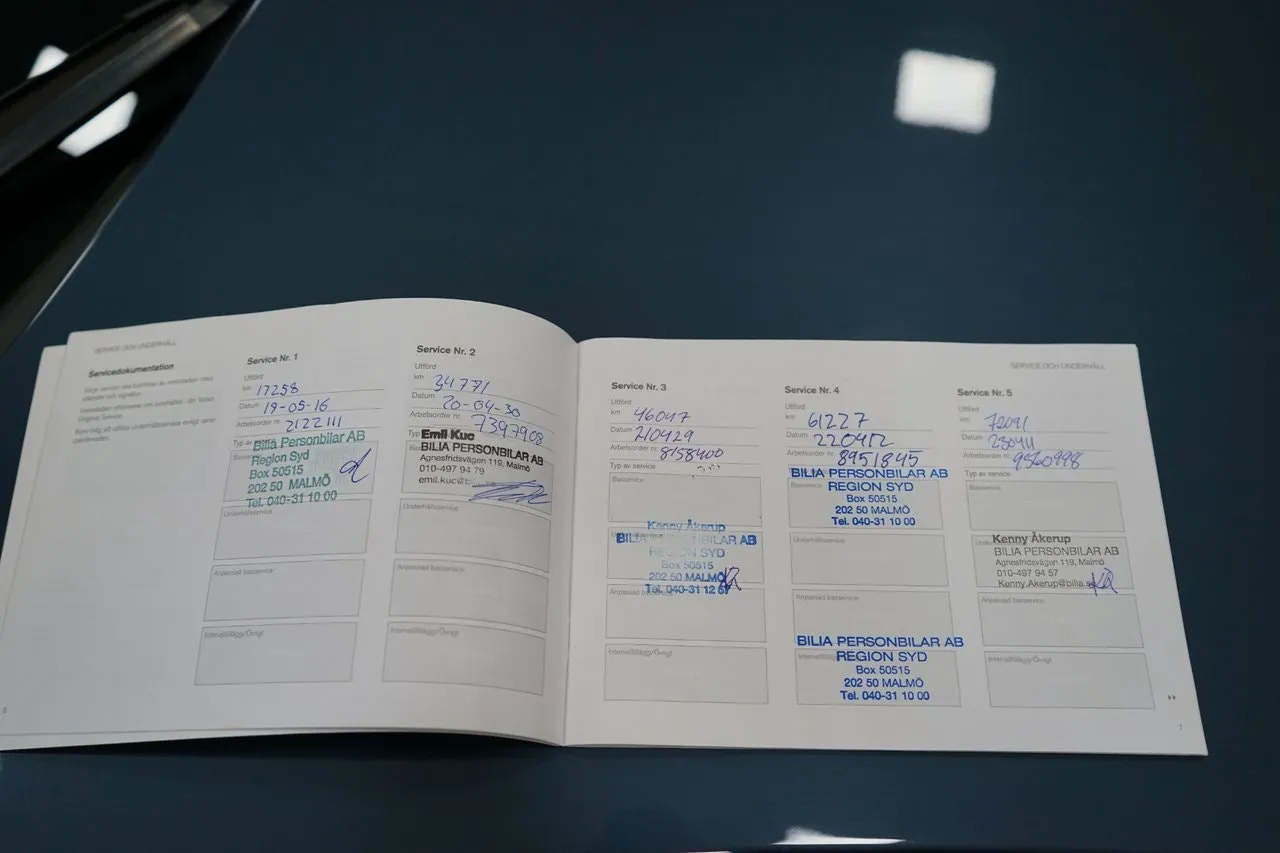 SERVICE OCH UNDERHÅLL
Servicedokumentation
6
Service Nr. 1
Utförd
km 17258
Datum 19-05-16
Arbetsorder nr. 2122111
Bilia Personbilar AB
Region Syd
Box 50515
202 50 MALMÖ
Tel. 040-31 10 00
Underhållsservice
Anpassad basservice
Intervalltillägg/Övrigt
Service Nr. 2
Utförd
km 34771
Datum 20-04-30
Arbetsorder nr. 7397908
Emil Kuc
BILIA PERSONBILAR AB
Agnesfridsvägen 119, Malmö
010-497 94 79
Underhållsservice
Anpassad basservice
Intervalltillägg/Övrigt
SERVICE OCH UNDERHÅLL
Service Nr. 3
Utförd
km 46047
Datum 210429
Arbetsorder nr. 8158400
Typ av service
Basservice
Kenny Åkerup
BILIA PERSONBILAR AB
REGION SYD
Box 50515
202 50 MALMÖ
Tel. 040-31 12
Anpassad basservice
Intervalltillägg/Övrigt
Service Nr. 4
Utförd
km 61227
Datum 220412
Arbetsorder nr. 8951845
BILIA PERSONBILAR AB
Basservice REGION SYD
Box 50515
202 50 MALMÖ
Tel. 040-31 10 00
Underhållsservice
Anpassad basservice
BILIA PERSONBILAR AB
REGION SYD
Box 50515
202 50 MALMÖ
Tel. 040-31 10 00
Service Nr. 5
Utförd
km 72091
Datum 230411
Arbetsorder nr. 9560998
Typ av service
Basservice
Kenny Åkerup
BILIA PERSONBILAR AB
Agnesfridsvägen 119, Malmö
010-497 94 57
Anpassad basservice
Intervalltillägg/Övrigt
7